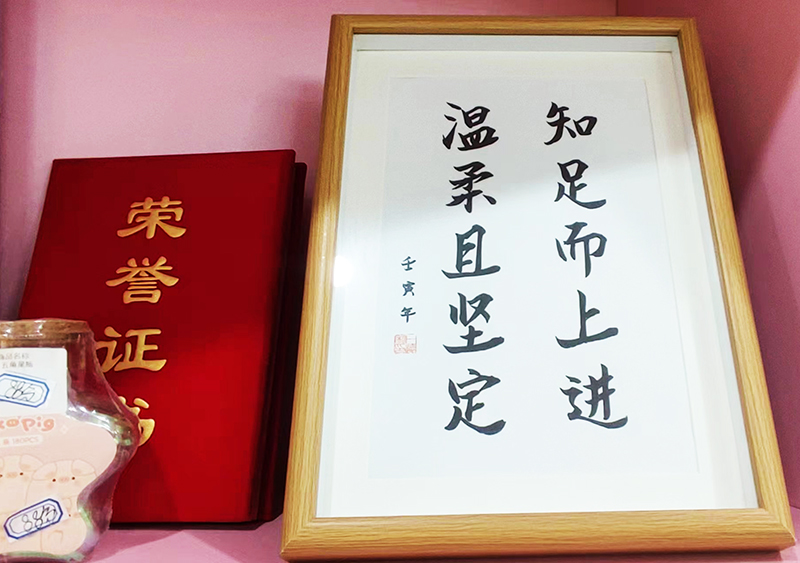 知足而上进
温柔且坚定
壬寅年
荣誉证书